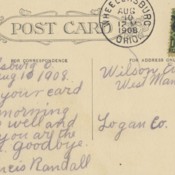 POST CARD
WHEELERSBURG
AUG
10
1908
OHIO
FOR CORRESPONDENCE
FOR ADDRESS
sburg O.
Aug 10, 1908.
your card
morning
well and
you are the
goodbye.
ncis Randall
Wilson
West Man
Logan Co.